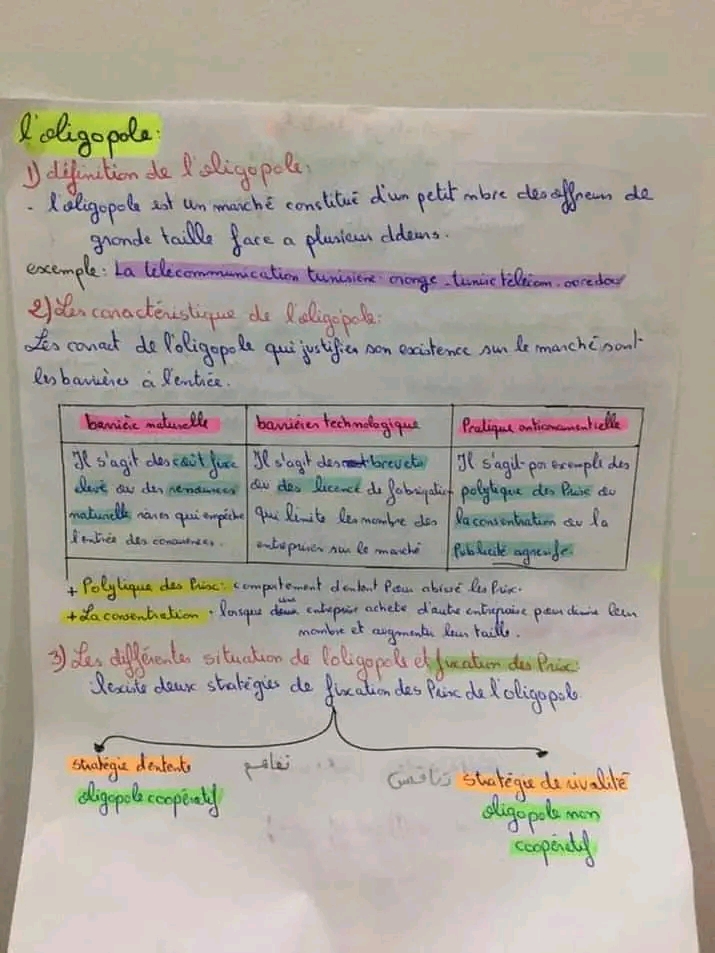 l'oligopole:
1) définition de l'oligopole:
- l'oligopole est un marché constitué d'un petit nbre des offreurs de
grande taille face a plusieurs ddeurs.
exemple: La télécommunication tunisiène: orange - tunisie télécom - ooredoo
2) Les caractéristique de l'oligopole:
Les caract de l'oligopole qui justifier son existence sur le marché sont
les barrières à l'entrée.
barrière naturelle
Il s'agit des coût fixe
élevé ou des ressources
naturelle rares qui empêche
l'entrée des concurrences.
barrières technologique
Il s'agit des brevets
ou des licence de fabrication
qui limite les nombre des
entreprises sur le marché
Pratique anticoncurrentielle
Il s'agit par exemple des
polytique des Prix ou
la consentration ou la
Publicité agresife
+ Polytique des Prix: comportement d'entent Pour abissé les Prix.
+ La consentration: lorsque une entreprise achete d'autre entreprise pour leur
nombre et augmenter leur taille.
3) Les différentes situation de l'oligopole et fixation des Prix:
Il existe deux stratégies de fixation des Prix de l'oligopole
stratégie d'entente
تفاهم
oligopole coopératif
تنافس
stratégie de rivalité
oligopole non
coopératif